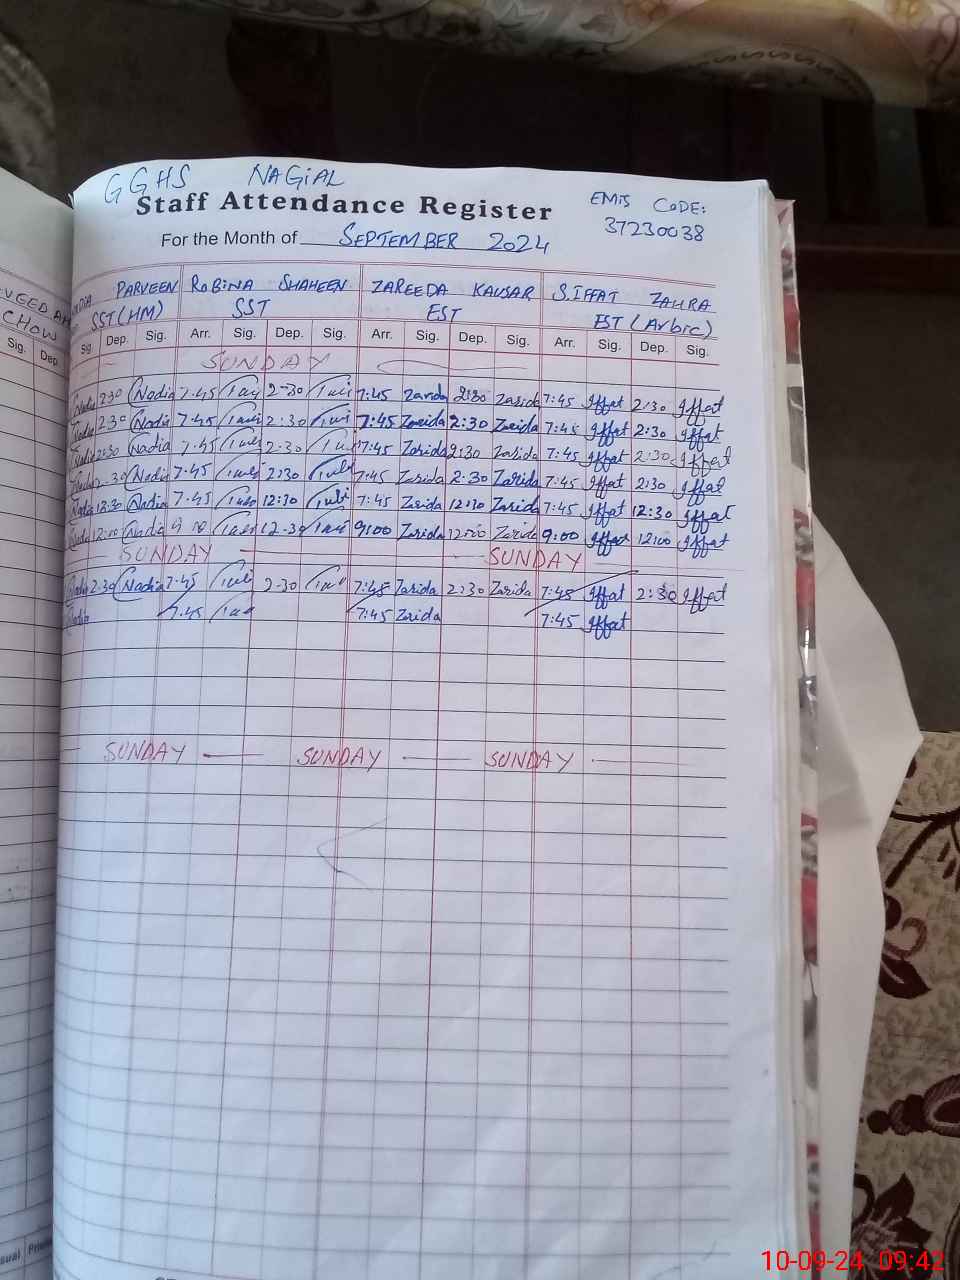 GGHS NAGIAL
Staff Attendance Register
EMIS CODE:
37230038
For the Month of SEPTEMBER 2024
PARVEEN ROBINA SHAHEEN ZAREEDA KAUSAR S.IFFAT ZAHRA
CHOW SST(HM) SST EST EST (Arbic)
Sig. Dep Sig Dep. Sig. Arr. Sig. Dep. Sig. Arr. Sig. Dep. Sig. Arr. Sig. Dep. Sig.
SUNDAY
Nadia 2:30 Nadia 7:45 2-30 7:45 Zarida 2:30 Zarida 7:45 Iffat 2:30 Iffat
Nadia 2:30 Nadia 7:45 2:30 7:45 Zarida 2:30 Zarida 7:45 Iffat 2:30 Iffat
Nadia 2:30 Nadia 7:45 2:30 7:45 Zarida 2:30 Zarida 7:45 Iffat 2:30 Iffat
Nadia 2:30 Nadia 7:45 2:30 7:45 Zarida 2:30 Zarida 7:45 Iffat 2:30 Iffat
Nadia 12:30 Nadia 7:45 12:30 7:45 Zarida 12:30 Zarida 7:45 Iffat 12:30 Iffat
Nadia 12:00 Nadia 9:00 Zarida 12:00 Zarida 9:00 Iffat 12:00 Iffat
SUNDAY SUNDAY
Nadia 2:30 Nadia 7:45 2-30 7:45 Zarida 2:30 Zarida 7:45 Iffat 2:30 Iffat
Nadia 7:45 7:45 Zarida 7:45 Iffat
SUNDAY SUNDAY SUNDAY
10-09-24 09:42